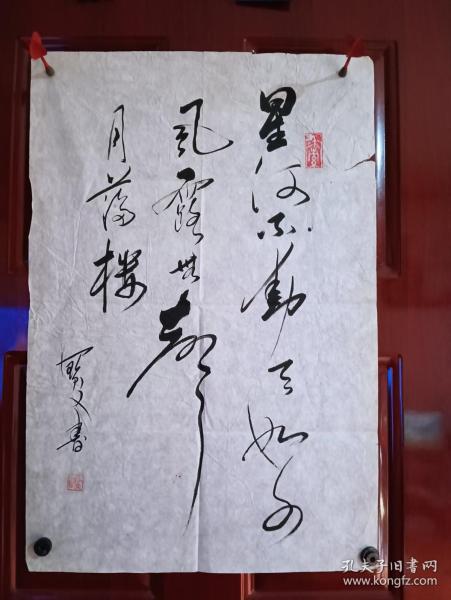 星河不動天如水
风露無聲
月满樓
文書
孔夫子旧书网
www.kongfz.com